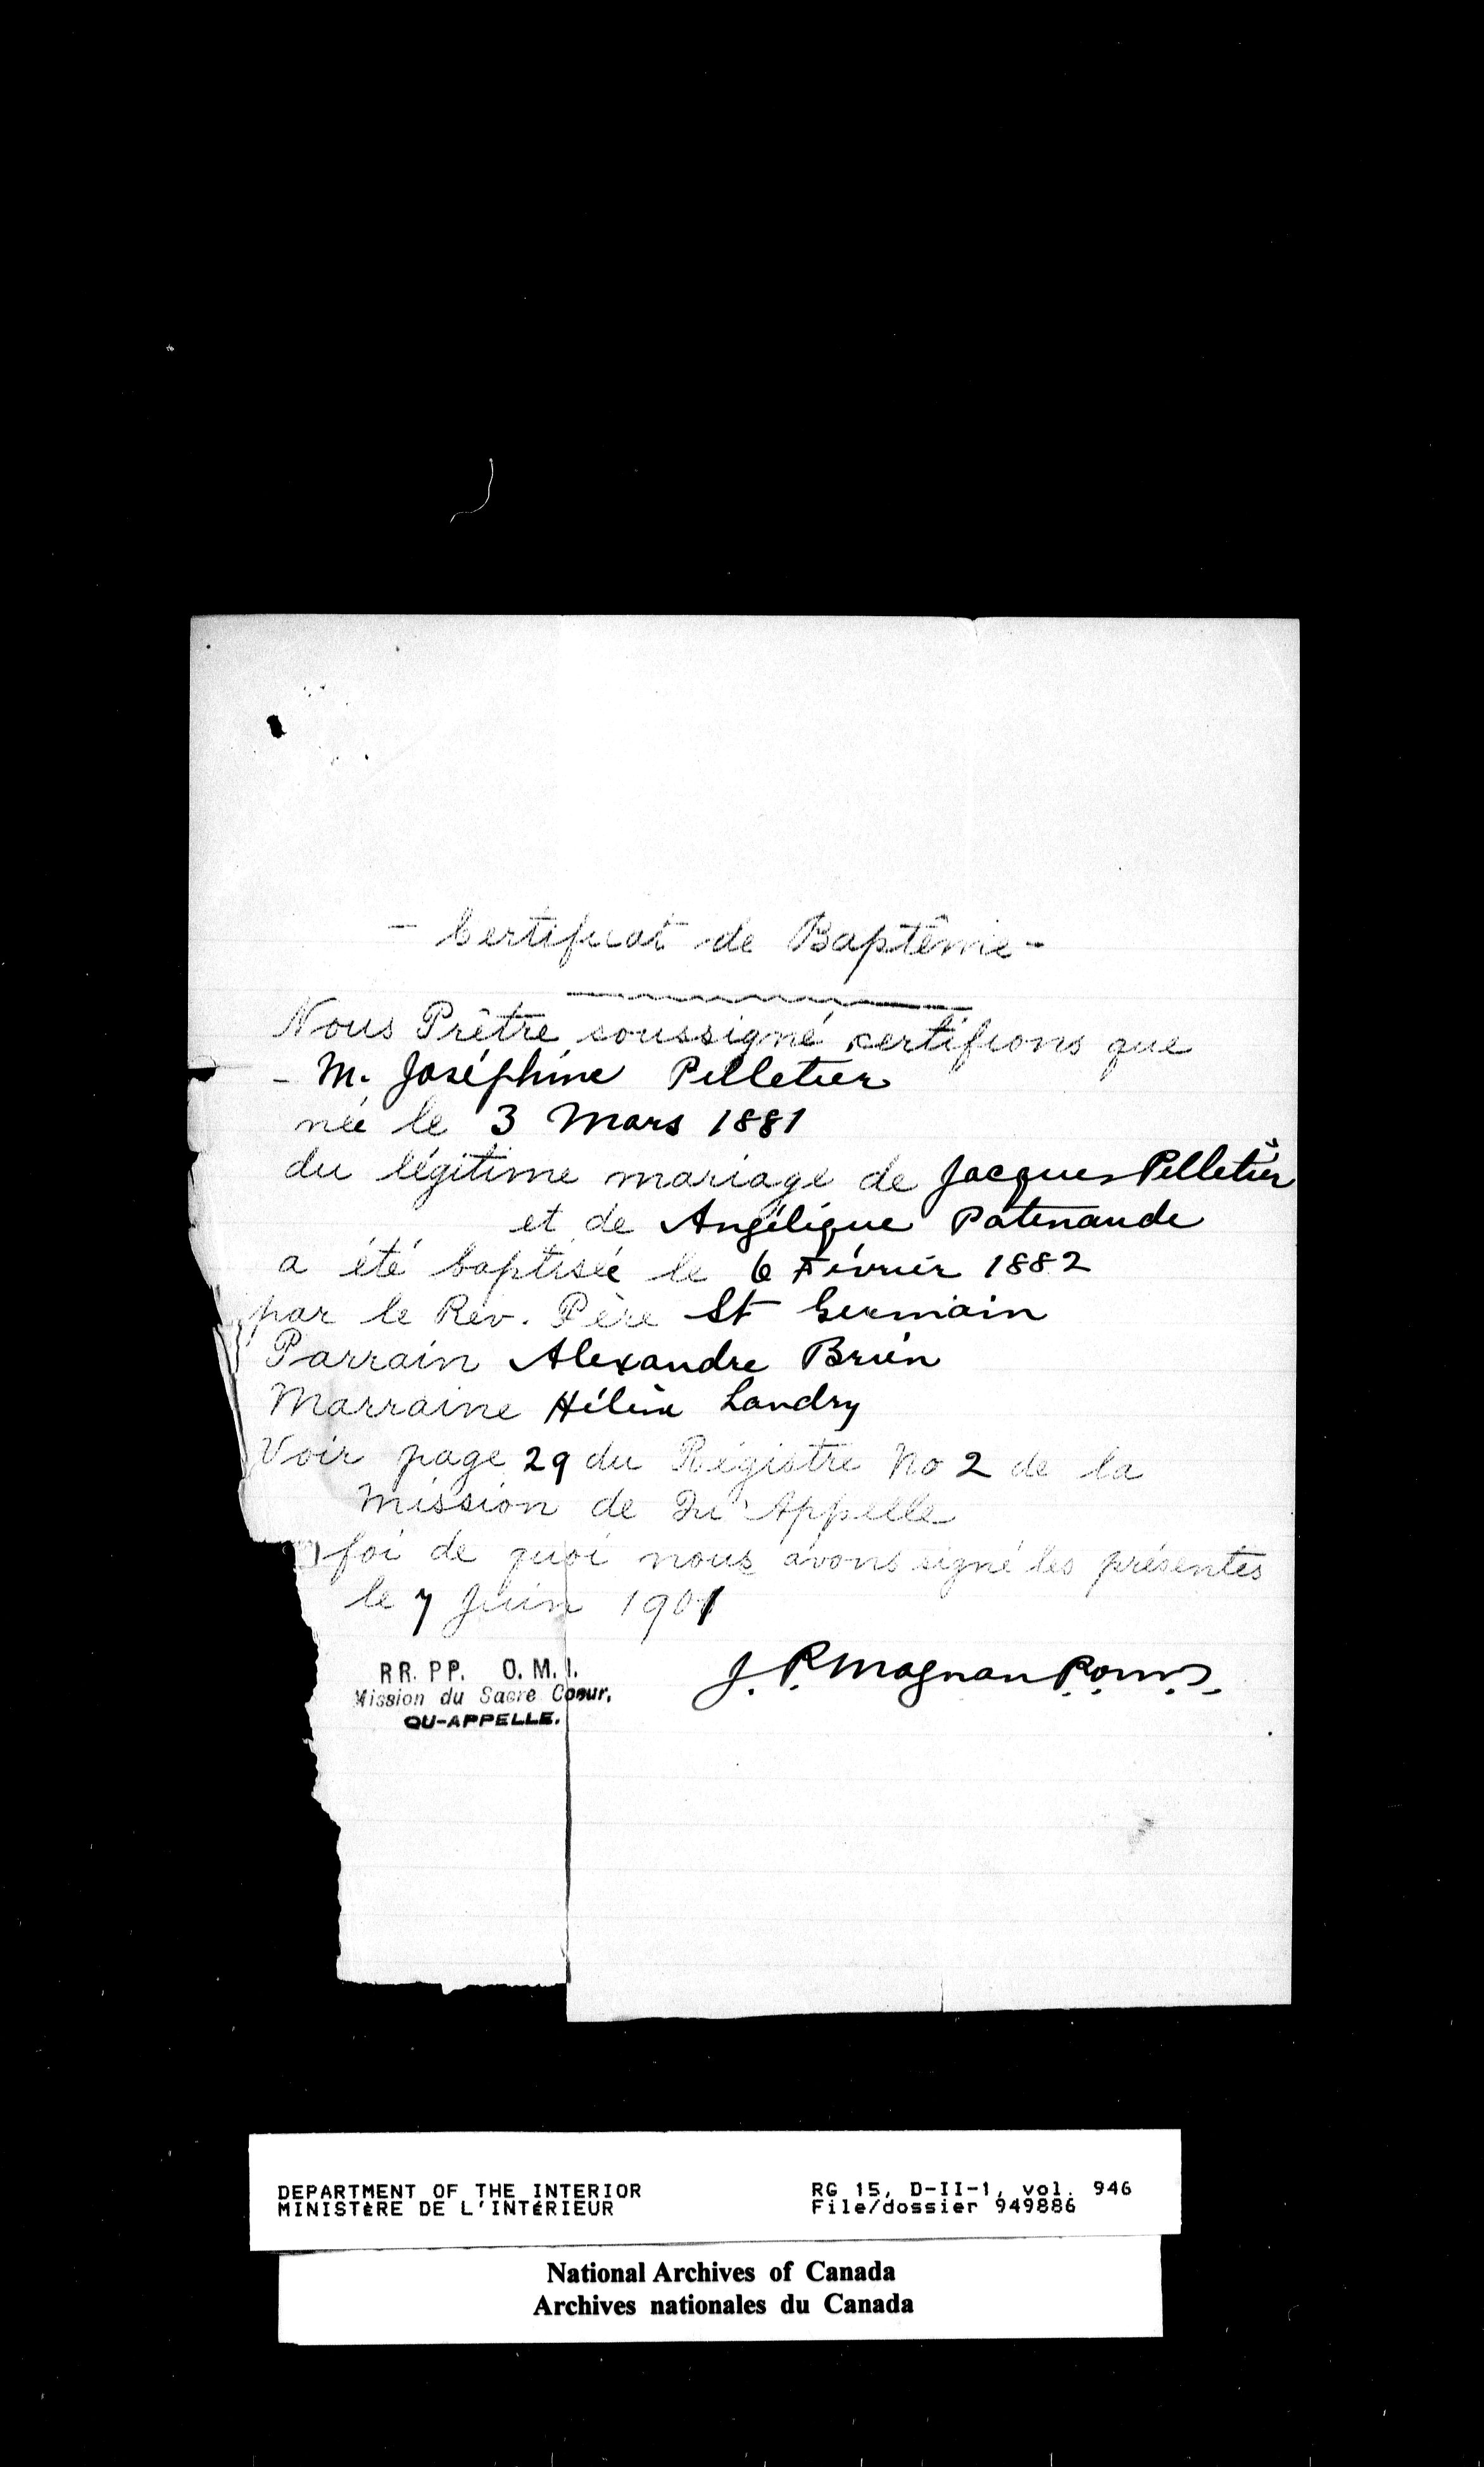 - Certificat de Baptême -
Nous Prêtre soussigné certifions que
- M. Joséphine Pelletier
née le 3 Mars 1881
du légitime mariage de Jacques Pelletier
et de Angélique Patenaude
a été baptisée le 6 Février 1882
par le Rev. Père St Germain
Parrain Alexandre Brién
Marraine Hélène Landry
Voir page 29 du Régistre No 2 de la
Mission de Qu'Appelle
foi de quoi nous avons signé les présentes
le 7 Juin 1901
RR. PP. O. M. I.
Mission du Sacre Coeur,
QU-APPELLE.
J. P. Magnan P.
DEPARTMENT OF THE INTERIOR
MINISTÈRE DE L'INTÉRIEUR
RG 15, D-II-1, vol. 946
File/dossier 949886
National Archives of Canada
Archives nationales du Canada